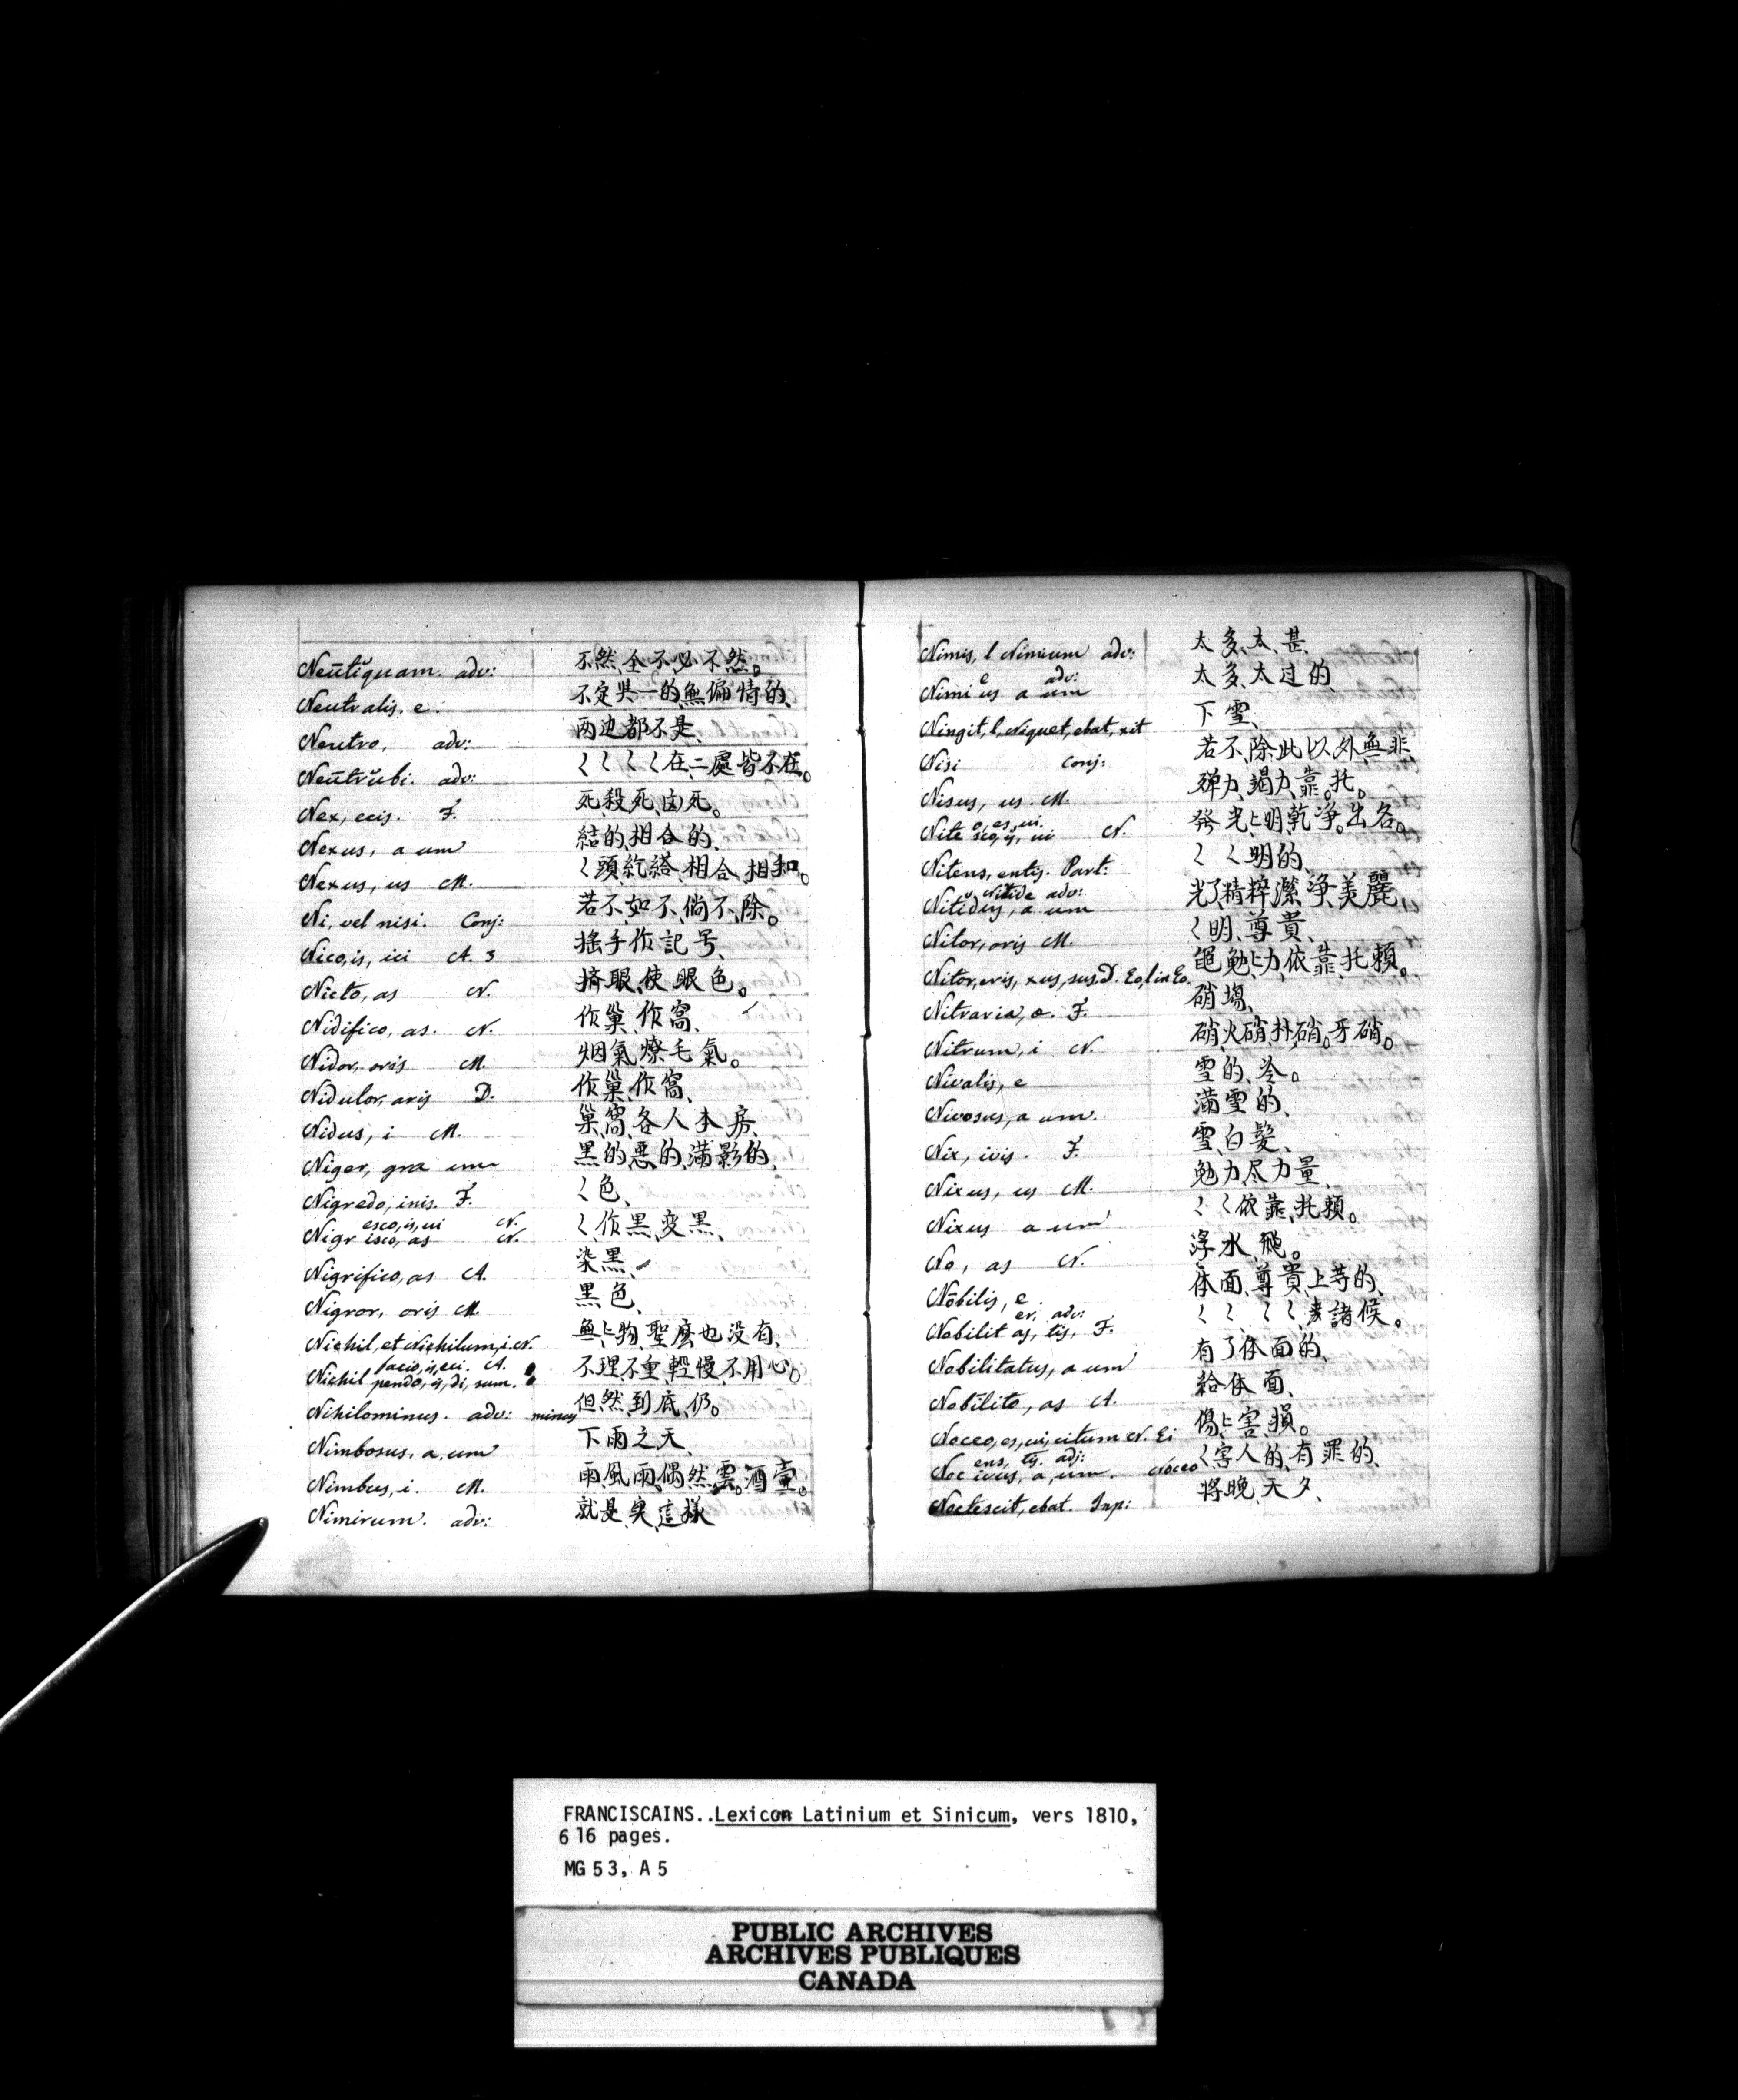 Neutiquam. adv: 不然、全不、必不然。
Neutralis, e. 不定吳一的、無偏情的、
Neutro, adv: 两边都不是、
Neutrubi. adv: 〱〱〱〱在、二處皆不在。
Nex, ecis. F. 死、殺死、凶死。
Nexus, a um 結的、相合的、
Nexus, us M. 〱頭、紇繨、相合、相和。
Ni, vel nisi. Conj: 若不、如不、倘不、除。
Nico, is, ici A. 3 搖手作記号、
Nicto, as N. 擠眼、使眼色。
Nidifico, as. N. 作巢、作窩、
Nidor, oris M. 烟氣、燎毛氣。
Nidulor, aris D. 作巢、作窩、
Nidus, i M. 巢、窩、各人本房、
Niger, gra um 黑的、惡的、滿影的、
Nigredo, inis. F. 〱色、
esco, is, ui N.
Nigr isco, as N. 〱、作黑、变黑、
Nigrifico, as A. 染黑、
Nigror, oris M. 黑色、
Nichil, et Nichilum, i. N. 無、無物、聖麽也没有、
facio, is, eci. A.
Nichil pendo, is, di, sum. 不理、不重、輕慢、不用心。
Nihilominus. adv: minus 但然、到底、仍。
Nimbosus, a, um 下雨之天、
Nimbus, i. M. 雨、風雨、偶然雲。酒壷。
Nimirum. adv: 就是、奥、這樣
Nimis, l Nimium adv: 太多、太甚、
e adv:
Nimi us a um 太多、太过的、
Ningit, l, Niguet, ebat, xit 下雪、
Nisi Conj: 若不、除此以外、無非、
Nisus, us. M. 殫力、竭力、靠。托。
o, es, ui.
Nite sco, is, ui N. 發光、明、乾净。出名。
Nitens, entis. Part: 〱〱明的、
Nitide adv:
Nitidus, a um 光了、精粹、潔净、美麗、
Nitor, oris M. 〱明、尊貴、
Nitor, eris, xus, sus. D. Eo, l in Eo. 黽勉、勉力、依靠、托賴。
Nitraria, æ. F. 硝塲、
Nitrum, i N. 硝、火硝、朴硝。牙硝。
Nivalis, e 雪的、冷。
Nivosus, a um. 滿雪的、
Nix, ivis. F. 雪、白髮、
Nixus, us M. 勉力、尽力量、
Nixus a um 〱〱依靠、托頼。
No, as N. 浮水、飛。
Nobilis, e. 体面、尊貴、上等的、
er. adv:
Nobilit as, tis, F. 〱〱、〱〱、諸候。
Nobilitatus, a um 有了体面的、
Nobilito, as A. 給体面、
Noceo, es, ui, citum N. Ei 傷、傷害、損。
ens, tis. adj:
Noc ivus, a, um. Noceo 〱害人的、有罪的、
Noctescit, ebat. Imp: 将晚、天夕、
FRANCISCAINS..Lexicon Latinium et Sinicum, vers 1810,
616 pages.
MG 53, A 5
PUBLIC ARCHIVES
ARCHIVES PUBLIQUES
CANADA